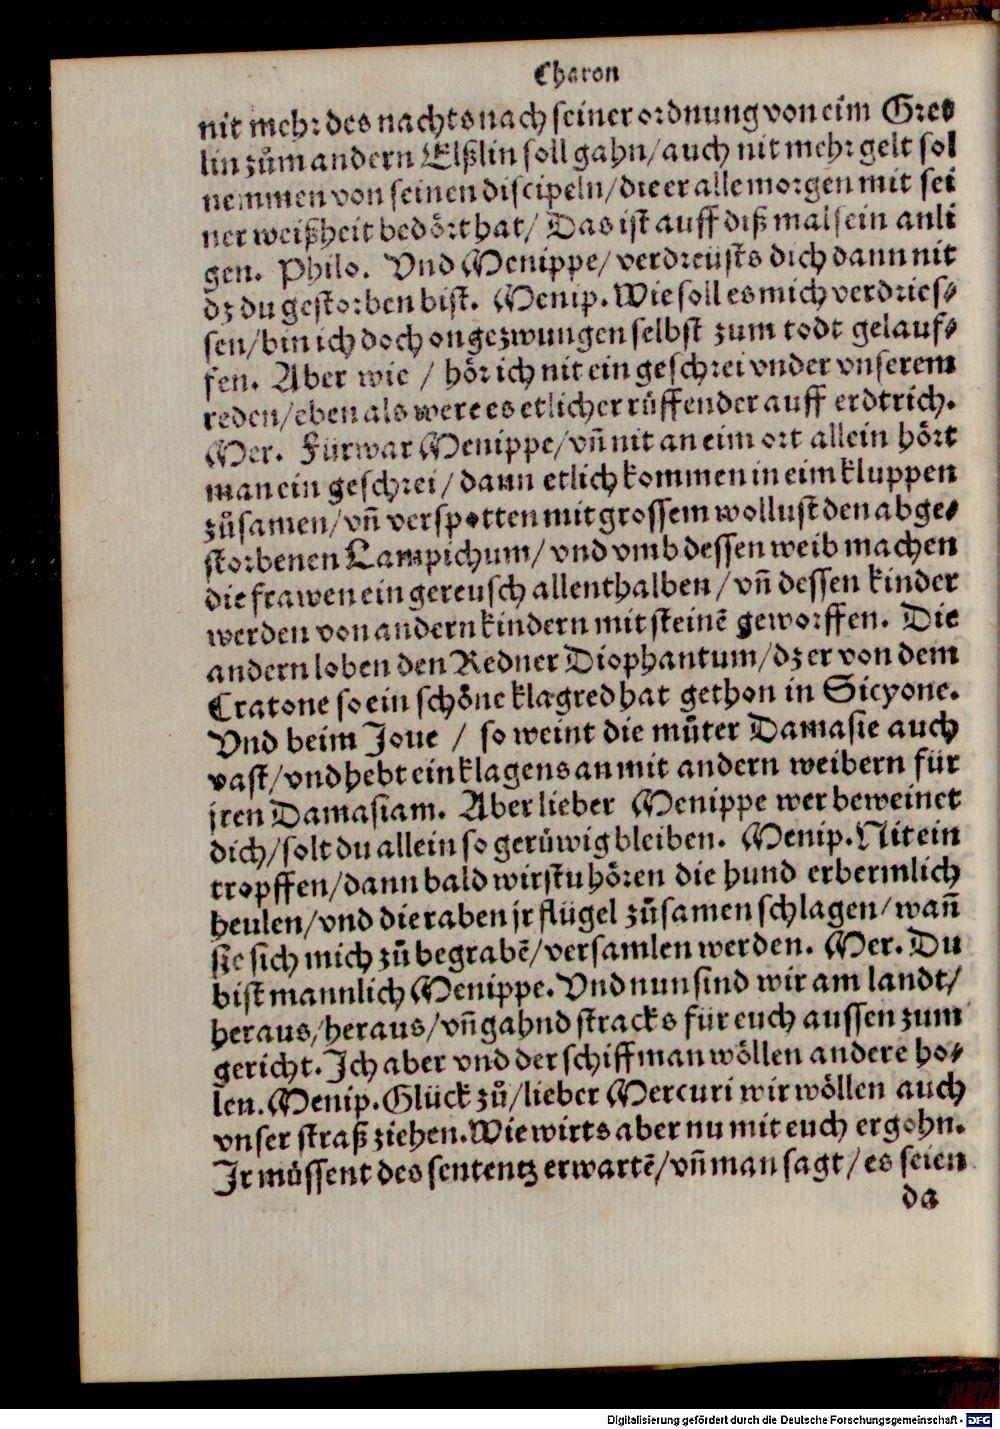 Charon
nit mehr des nachts nach seiner ordnung von eim Gres
lin zům andern Elßlin soll gahn/ auch nit mehr gelt sol
nemmen von seinen discipeln/ die er alle morgen mit sei
ner weißheit bedört hat/ Das ist auff diß mal sein anli
gen. Philo. Vnd Menippe/ verdreüsts dich dann nit
dz du gestorben bist. Menip. Wie soll es mich verdries⸗
sen/ bin ich doch ongezwungen selbst zum todt gelauf⸗
fen. Aber wie / hör ich nit ein geschrei vnder vnserem
reden/ eben als were es etlicher rüffender auff erdtrich.
Mer. Fürwar Menippe/ vñ nit an eim ort allein hört
man ein geschrei/ dann etlich kommen in eim kluppen
zůsamen/ vñ verspotten mit grossem wollust den abge⸗
storbenen Lampichum/ vnd vmb dessen weib machen
die frawen ein gereusch allenthalben/ vñ dessen kinder
werden von andern kindern mit steinẽ geworffen. Die
andern loben den Redner Diophantum/ dz er von dem
Cratone so ein schöne klagred hat gethon in Sicyone.
Vnd beim Joue / so weint die můter Damasie auch
vast/ vnd hebt ein klagens an mit andern weibern für
jren Damasiam. Aber lieber Menippe wer beweinet
dich/ solt du allein so gerüwig bleiben. Menip. Nit ein
tropffen/ dann bald wirstu hören die hund erbermlich
heulen/ vnd die raben jr flügel zůsamen schlagen/ wañ
sie sich mich zů begrabẽ/ versamlen werden. Mer. Du
bist mannlich Menippe. Vnd nun sind wir am landt/
heraus/ heraus/ vñ gahnd stracks für euch aussen zum
gericht. Ich aber vnd der schiffman wöllen andere ho⸗
len. Menip. Glück zů/ lieber Mercuri wir wöllen auch
vnser straß ziehen. Wie wirts aber nu mit euch ergohn.
Ir müssent des sententz erwartẽ/ vñ man sagt/ es seien
da
Digitalisierung gefördert durch die Deutsche Forschungsgemeinschaft - DFG